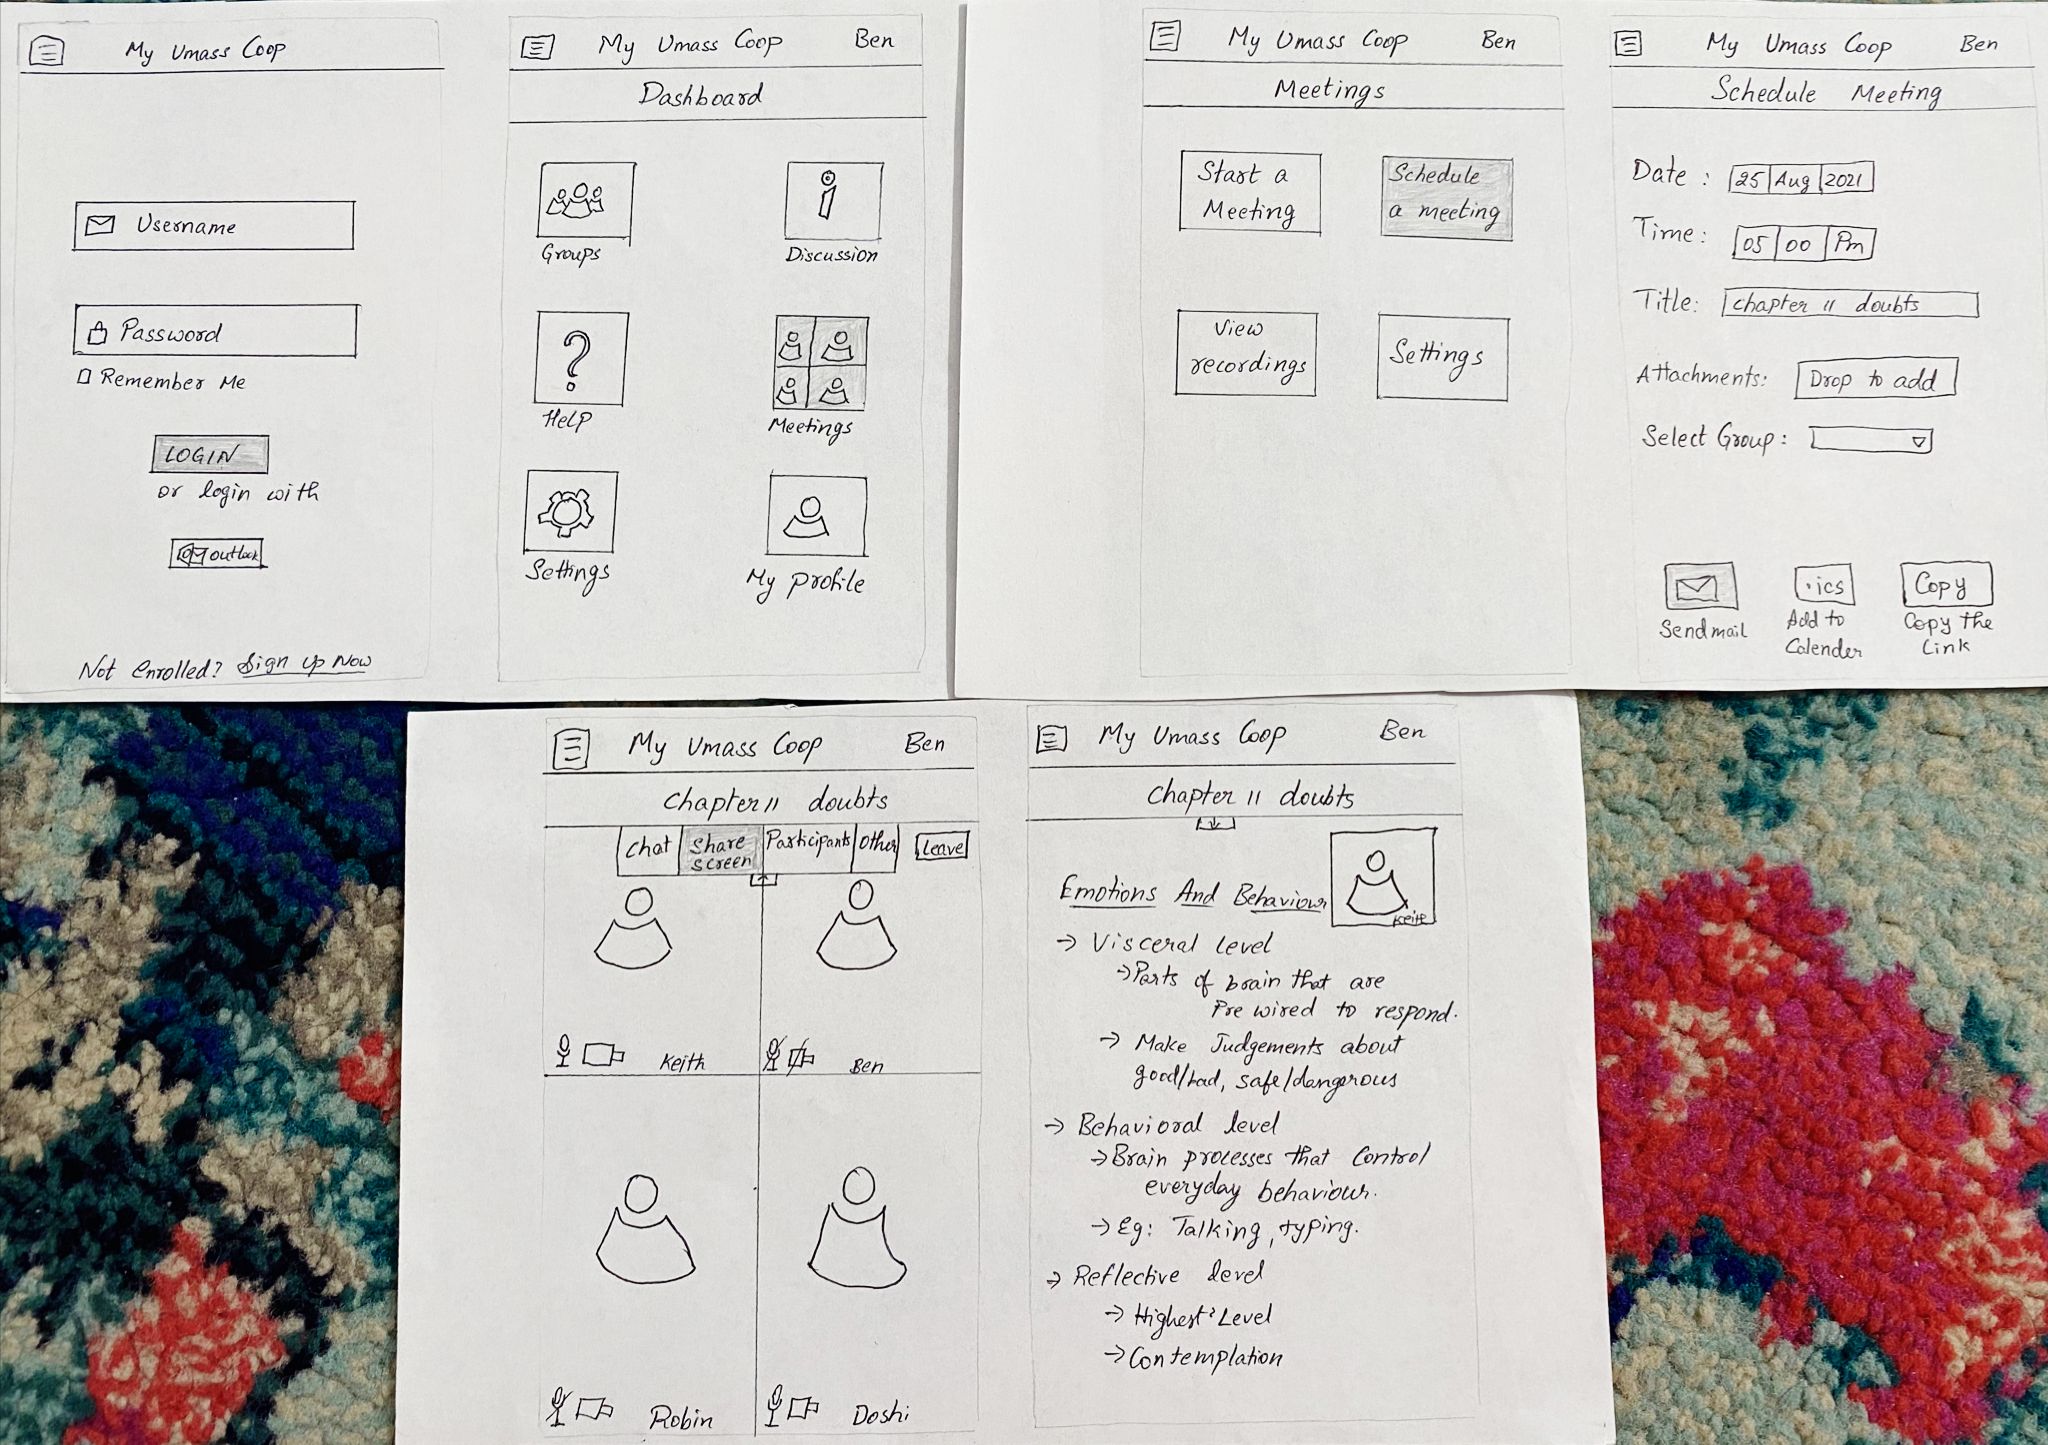 My Umass Coop
Username
Password
Remember Me
LOGIN
or login with
outlook
Not Enrolled? Sign up Now
My Umass Coop Ben
Dashboard
Groups
Discussion
?
Help
Meetings
Settings
My profile
My Umass Coop Ben
Meetings
Start a
Meeting
Schedule
a meeting
View
recordings
Settings
My Umass Coop Ben
Schedule Meeting
Date : 25 Aug 2021
Time: 05 00 Pm
Title: chapter 11 doubts
Attachments: Drop to add
Select Group:
Send mail
.ics
Add to
Calender
Copy
Copy the
Link
My Umass Coop Ben
Chapter 11 doubts
Chat
Share
screen
Participants
Other
Leave
Keith
Ben
Robin
Doshi
My Umass Coop Ben
Chapter 11 doubts
Keith
Emotions And Behaviour
→ Visceral level
→ Parts of brain that are
Pre wired to respond.
→ Make Judgements about
good/bad, safe/dangerous
→ Behavioral level
→ Brain processes that control
everyday behaviour.
→ Eg: Talking, typing.
→ Reflective level
→ Highest Level
→ Contemplation